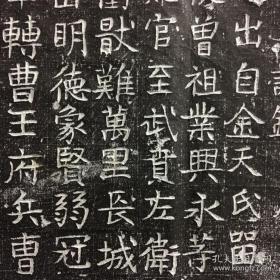 出自金天氏
曾祖業興永
官至武賁左衛
猷難萬里長城
明德象賢弱冠
轉曹王府兵曹